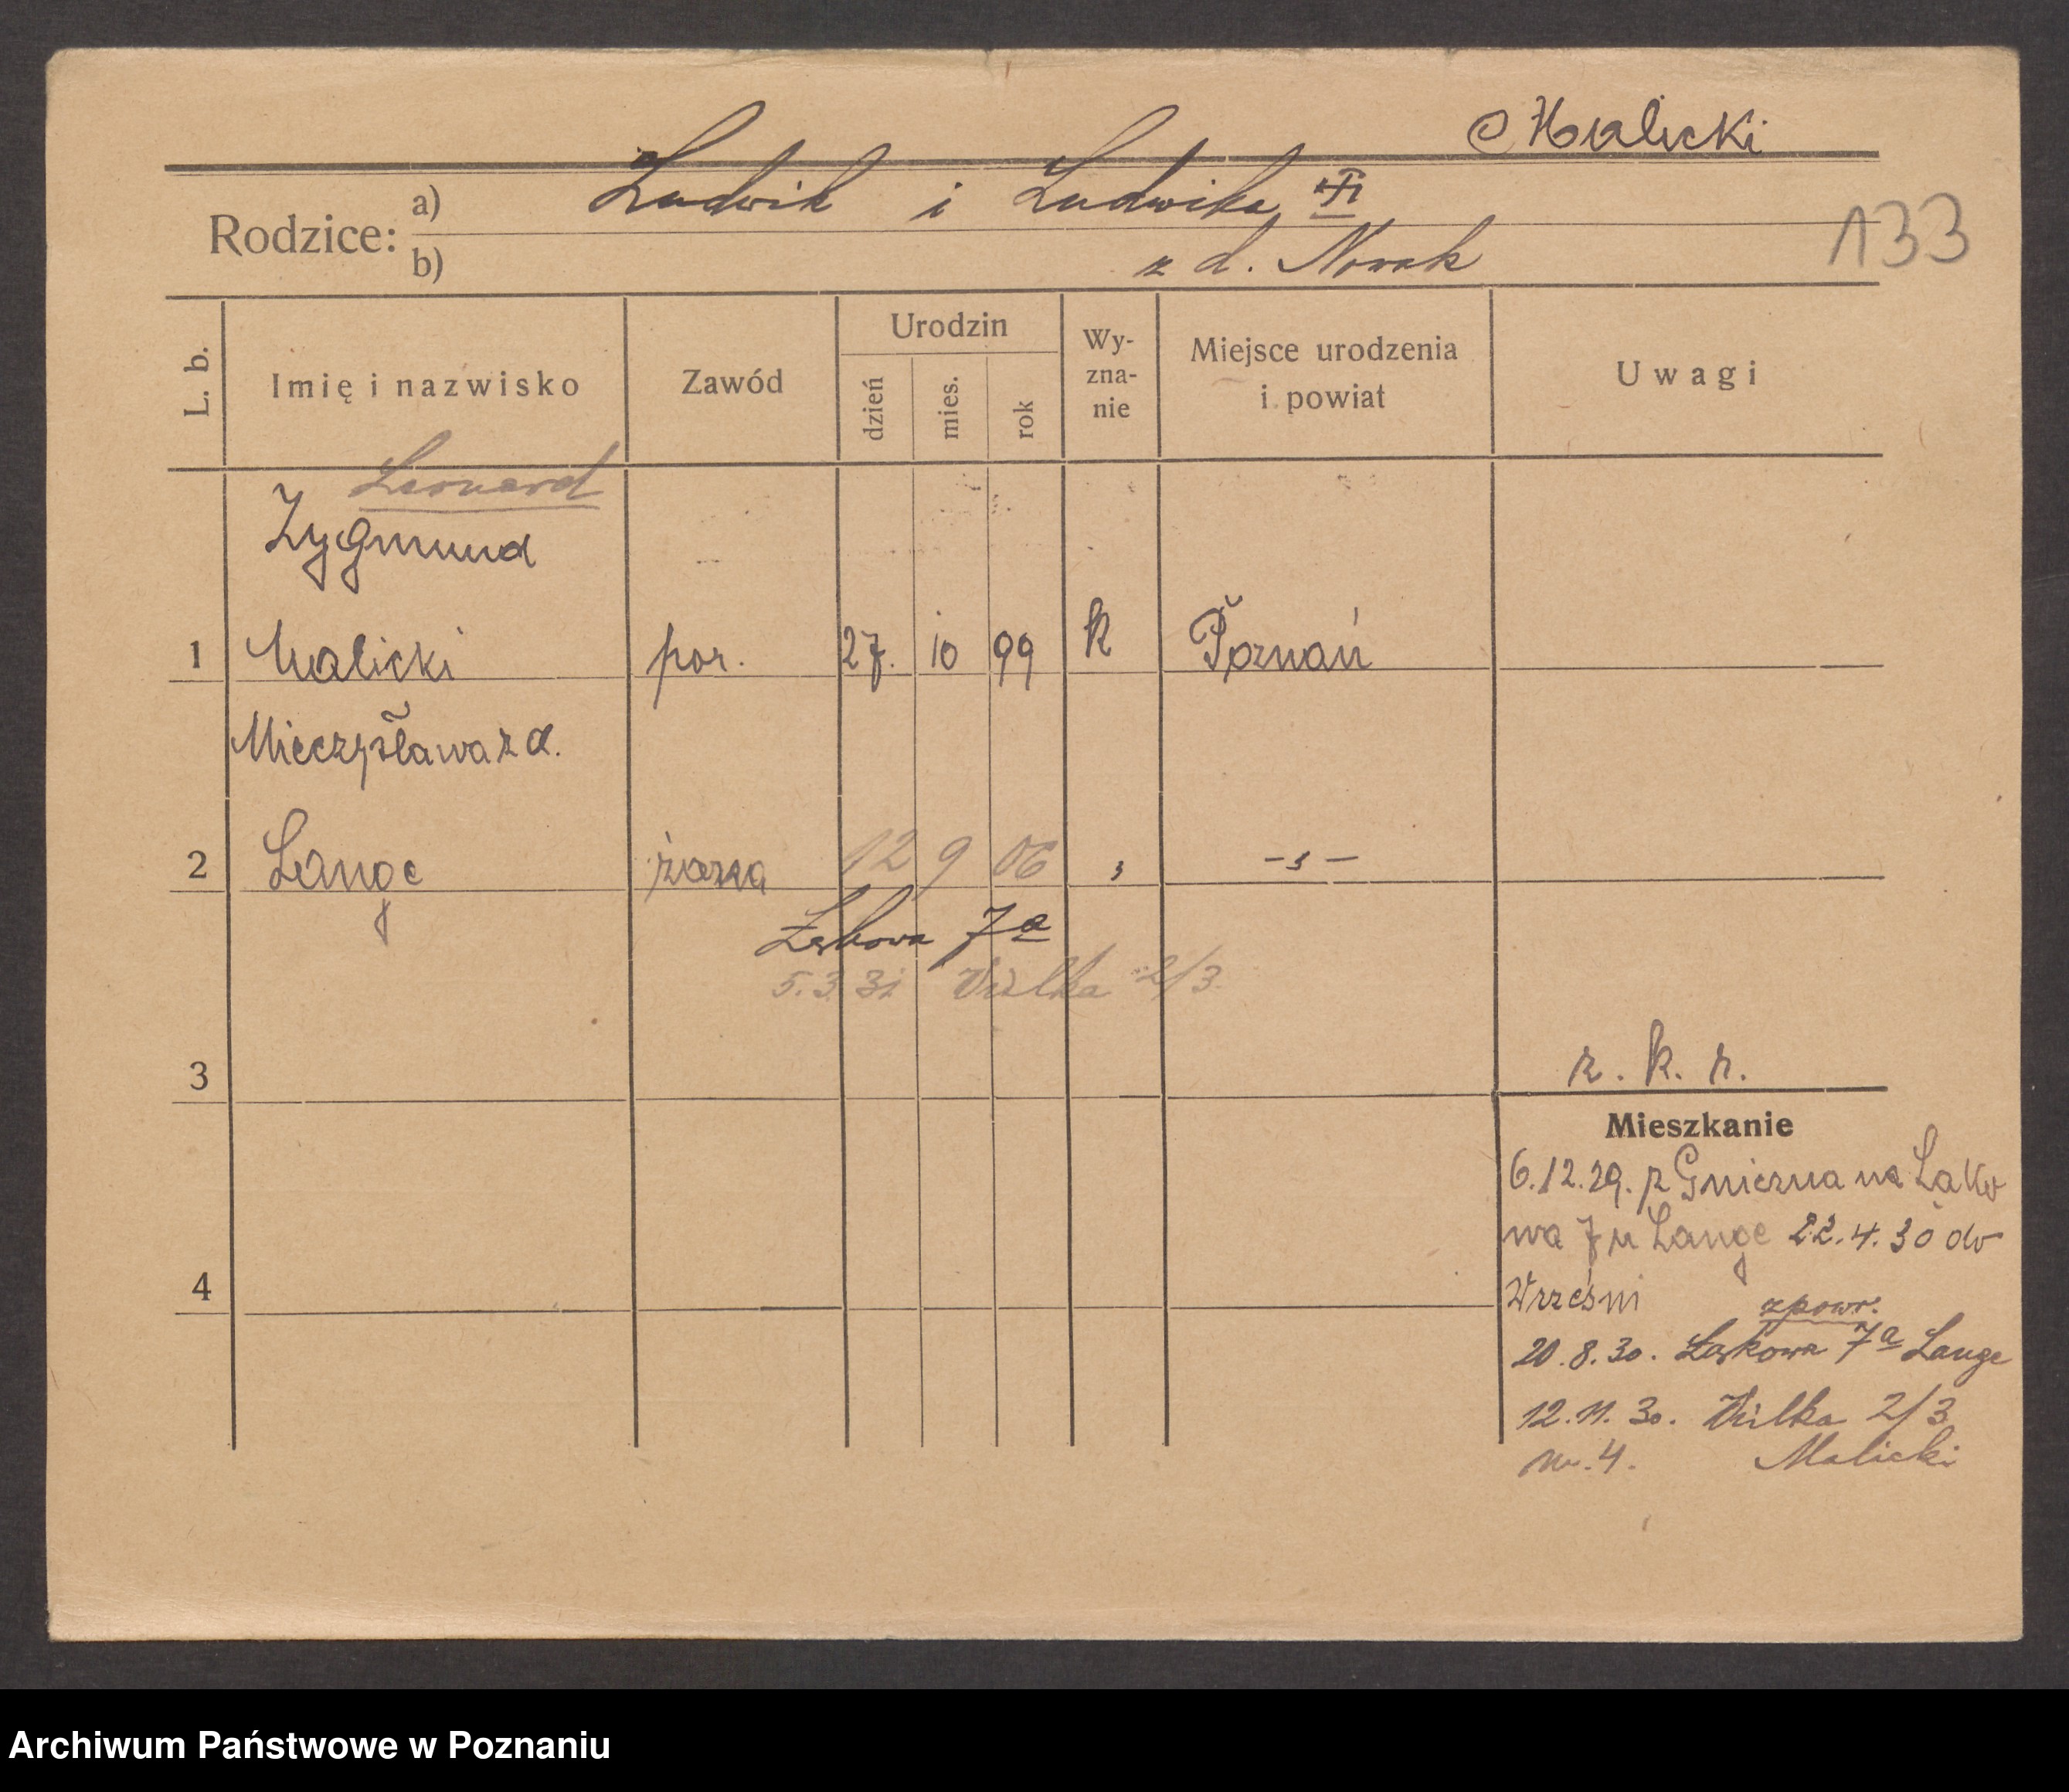 Malicki
Rodzice: a) Ludwik i Ludwika
b) z d. Nowak
133
L. b.
Imię i nazwisko
Zawód
Urodzin
dzień
mies.
rok
Wy-
zna-
nie
Miejsce urodzenia
i powiat
Uwagi
Leonard
Zygmund
1 Malicki por. 27. 10 99 k Poznań
Mieczysława z d.
2 Lange żona 12 9 06 " - " -
Łąkowa 7a
5.3 31 Wilka 2/3
3
r. k. r.
Mieszkanie
6.12.29. z Gniezna na Łąko
wa 7 u Lange 22.4.30 do
4
Wrześni
z powr.
20.8.30. Łąkowa 7a Lange
12.11.30. Wilka 2/3
m. 4. Malicki
Archiwum Państwowe w Poznaniu